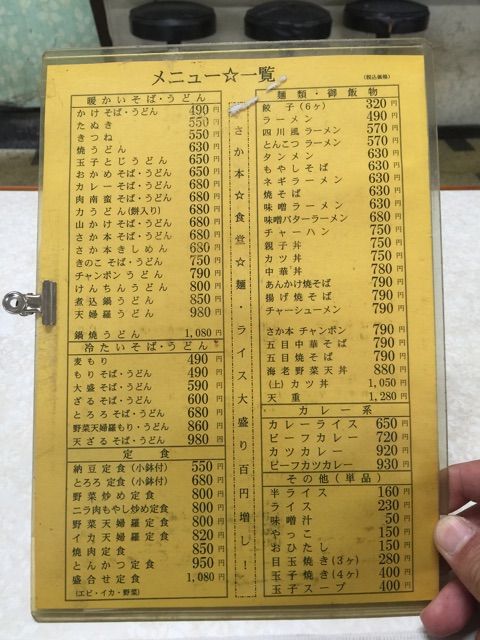 メニュー☆一覧
(税込価格)
暖かいそば・うどん
かけそば・うどん 490円
たぬき 550円
きつね 550円
焼うどん 630円
玉子とじうどん 650円
おかめそば・うどん 650円
カレーそば・うどん 680円
肉南蛮そば・うどん 680円
力うどん(餅入り) 680円
山かけそば・うどん 680円
さか本そば・うどん 680円
さか本きしめん 680円
きのこそば・うどん 750円
チャンポンうどん 790円
けんちんうどん 800円
煮込鍋うどん 850円
天婦羅うどん 980円
鍋焼うどん 1,080円
冷たいそば・うどん
麦もり 490円
もりそば・うどん 490円
大盛そば・うどん 590円
ざるそば・うどん 600円
とろろそば・うどん 680円
野菜天婦羅もり・うどん 860円
天ざるそば・うどん 980円
定食
納豆定食(小鉢付) 550円
とろろ定食(小鉢付) 680円
野菜炒め定食 800円
ニラ肉もやし炒め定食 800円
野菜天婦羅定食 800円
イカ天婦羅定食 820円
焼肉定食 850円
とんかつ定食 950円
盛合せ定食 1,080円
(エビ・イカ・野菜)
さか本☆食堂☆麺・ライス大盛り百円増し!
麺類・御飯物
餃子(6ヶ) 320円
ラーメン 490円
四川風ラーメン 570円
とんこつラーメン 570円
タンメン 630円
もやしそば 630円
ネギラーメン 630円
焼そば 630円
味噌ラーメン 630円
味噌バターラーメン 680円
チャーハン 750円
親子丼 750円
カツ丼 750円
中華丼 780円
あんかけ焼そば 790円
揚げ焼そば 790円
チャーシューメン 790円
さか本チャンポン 790円
五目中華そば 790円
五目焼そば 790円
海老野菜天丼 880円
(上)カツ丼 1,050円
天重 1,280円
カレー系
カレーライス 650円
ビーフカレー 720円
カツカレー 920円
ビーフカツカレー 930円
その他(単品)
半ライス 160円
ライス 230円
味噌汁 50円
やっこ 150円
おひたし 150円
目玉焼き(3ヶ) 280円
玉子焼き(4ヶ) 400円
玉子スープ 400円